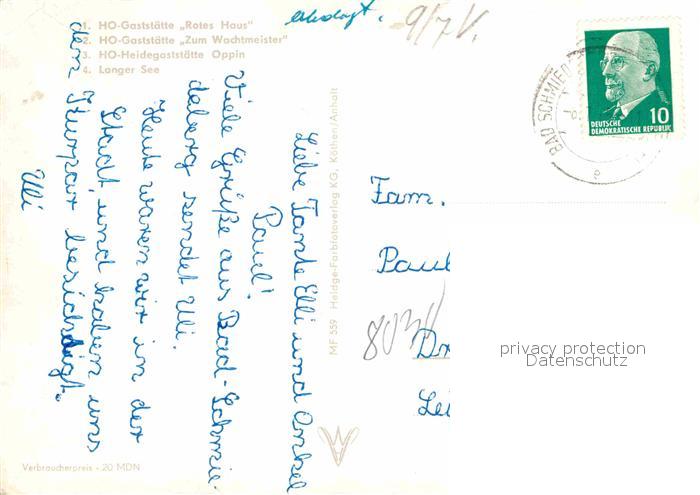 1. HO-Gaststätte „Rotes Haus"
2. HO-Gaststätte „Zum Wachtmeister"
3. HO-Heidegaststätte Oppin
4. Langer See
9/7 V.
Liebe Tante Elli und Onkel
Paul!
Viele Grüße aus Bad-Schmie-
deberg sendet Uli.
Heute waren wir in der
Stadt und haben uns
den Kurpar besichtigt.
Uli
MF 559 Heldge-Farbfotoverlag KG, Köthen/Anhalt
Verbraucherpreis - 20 MDN
BAD SCHMIED
10
DEUTSCHE
DEMOKRATISCHE REPUBLIK
Fam.
Paul
8030
Dr
Lei
privacy protection
Datenschutz